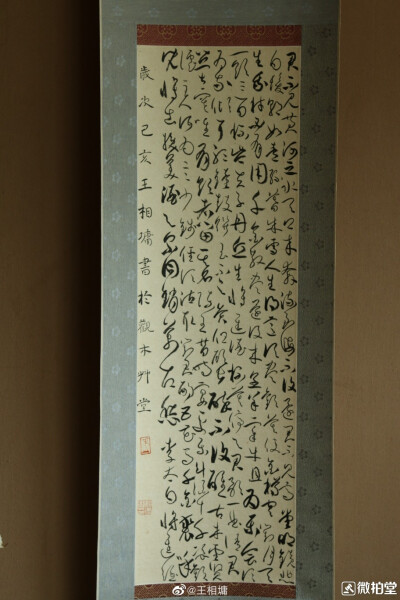 君不見黃河之水天上來奔流到海不復還君不見高堂明鏡悲
白髮朝如青絲暮成雪人生得意須盡歡莫使金樽空對月天
生我材必有用千金散盡還復來烹羊宰牛且為樂會須
一飲三百杯岑夫子丹丘生將進酒杯莫停與君歌一曲請君
為我傾耳聽鐘鼓饌玉不足貴但願長醉不復醒古來聖賢
皆寂寞惟有飲者留其名陳王昔時宴平樂斗酒十千恣歡
謔主人何為言少錢徑須沽取對君酌五花馬千金裘呼
兒將出換美酒與爾同銷萬古愁李太白將進酒
歲次己亥王相墉書於觀木艸堂
@王相墉
微拍堂